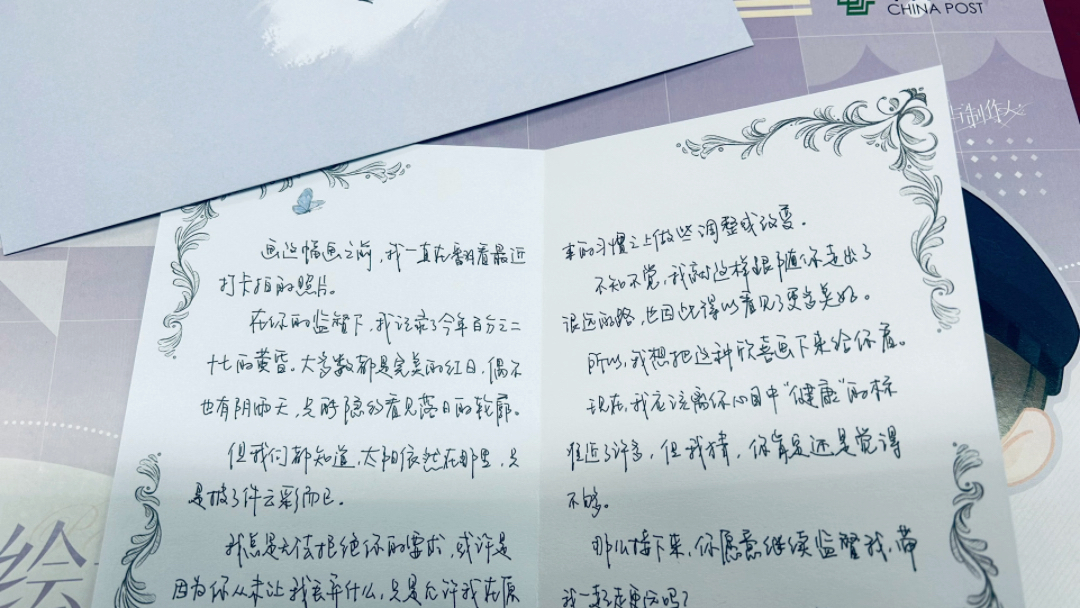 CHINA POST
与制作人
绘
画这幅画之前，我一直在翻看最近
打卡拍的照片。
在你的监督下，我记录了今年百分之二
十七的黄昏。大多数都是完美的红日，偶尔
也有阴雨天，只能隐约看见落日的轮廓。
但我们都知道，太阳依然在那里，只
是披了件云彩而已。
我总是无法拒绝你的要求，或许是
因为你从未让我丢弃什么，只是允许我在原
来的习惯之上做些调整或改变。
不知不觉，我就这样跟随你走出了
很远的路，也因此得以看见了更多美好。
所以，我想把这种欣喜画下来给你看。
现在，我应该离你心目中“健康”的标
准近了许多，但我猜，你肯定还是觉得
不够。
那么接下来，你愿意继续监督我，带
我一起走更远吗？